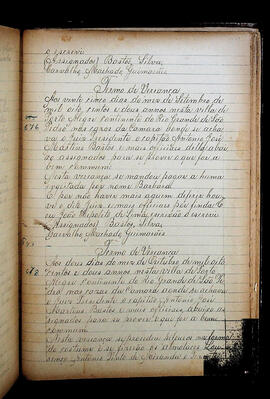 o escrevi
(Assignados) Bastos, Silva,
Carvalho, Machado Guimarães
Termo de Vereança
Aos vinte cinco dias do mez de Setembro de
mil oito centos e dous annos nesta villa de
Porto Alegre Continente do Rio Grande de São
Pedro nas cazas da Camara donde se acha
va o Juiz Presidente o capitão Antonio José
Martins Bastos e mais officiaes
ao assignados para se prover o que for a
bem commum
Nesta vereança se mandou pagar a huma
por nome Barbara
E por não haver mais aquem diferir houve
o dito Juiz e mais officiaes por finda
eu João Hipolito de Lima escrivão o escrevi
(Assignados) Bastos, Silva,
Carvalho, Machado Guimarães
Termo de Vereança
Aos dous dias do mez de Outubro de mil oito
centos e dous annos nesta villa de Porto
Alegre Continente do Rio Grande de São Pe
dro nas cazas da Camara aonde se achava
o Juiz Presidente o capitão Antonio José
Martins Bastos e mais officiaes abaixo as
signados para se prover o que for a bem
commum
Nesta vereança se procedeu
de costume e se fizerão os almotaces
Antonio Pinto de